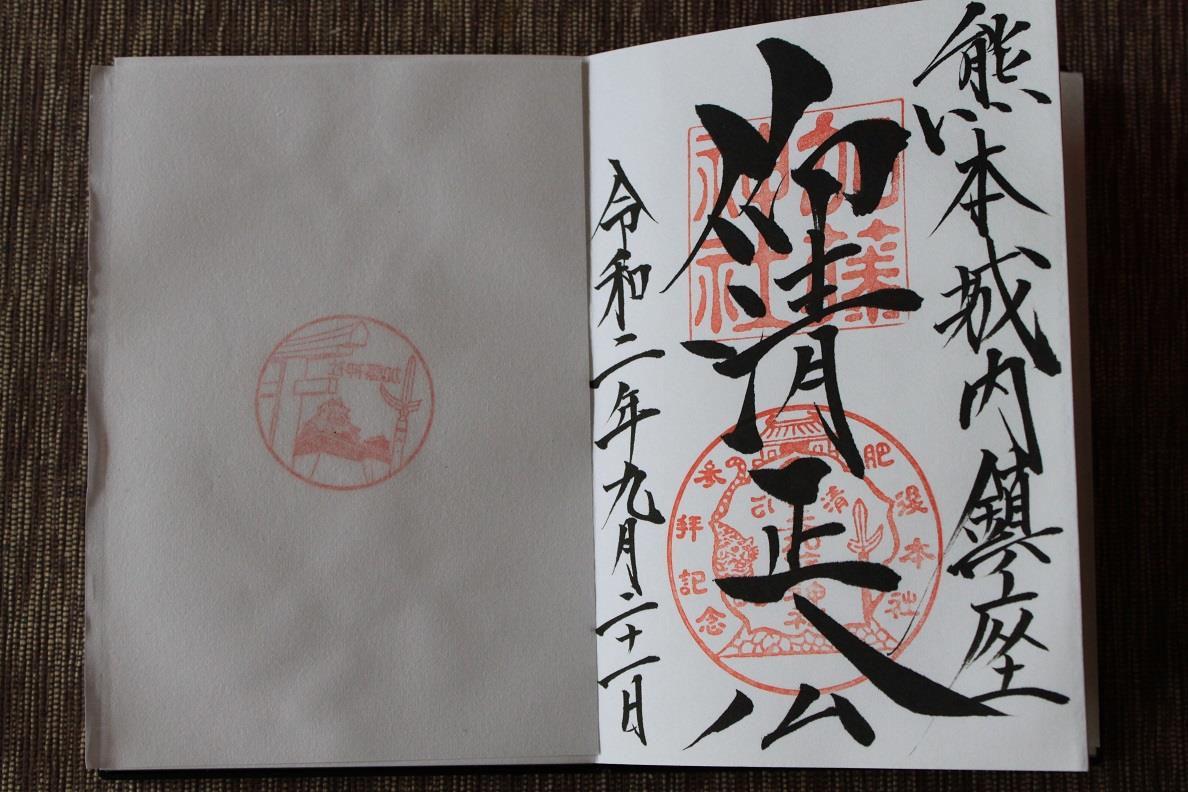 熊本城内鎮座
仰清正公
令和二年九月二十一日
加藤
神社
肥後本社
参拝記念
加藤神社